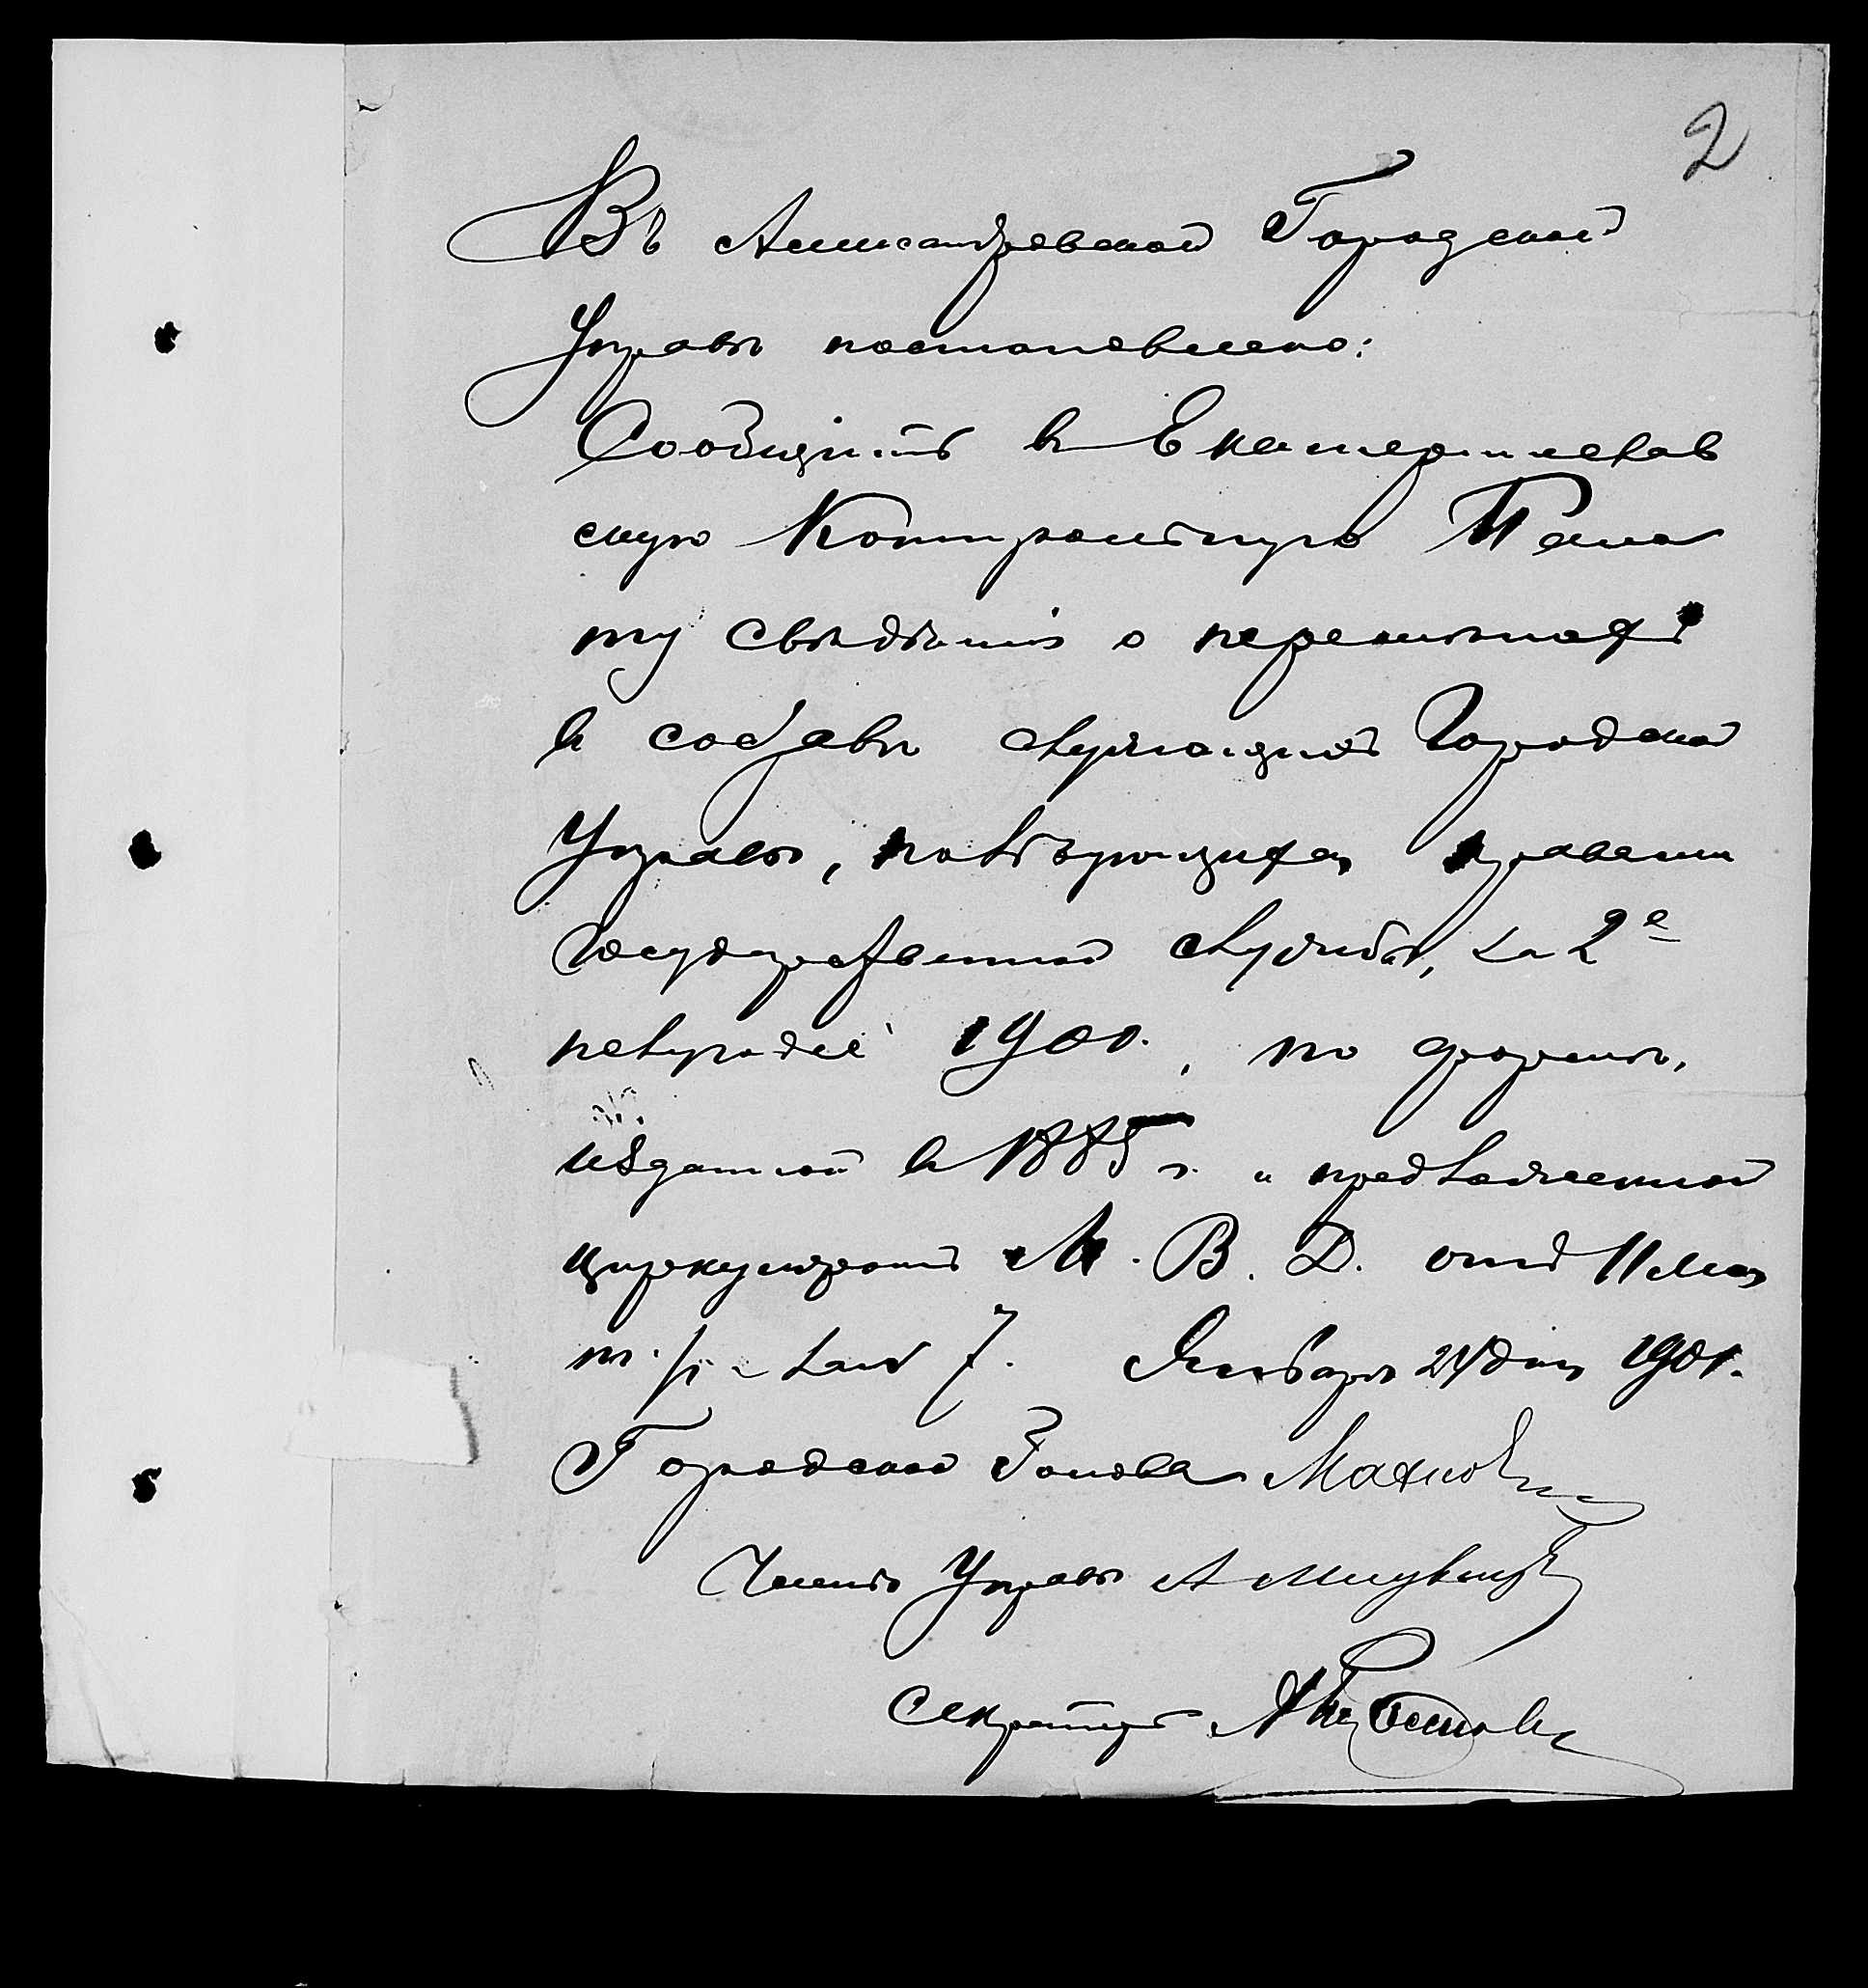 2
Въ Александровской Городской
Управѣ постановлено:
Сообщить въ Екатеринослав
скую Контрольную Пала
ту свѣдѣнія о перемѣнахъ
въ составѣ служащихъ Городской
Управы, пользующихся правами
Государственной службы, за 2е
полугодіе 1900 г., по формѣ,
изданной въ 1885 г. и предложенной
циркуляромъ М. В. Д. отъ 11 Мая
т. г. за № 7. Января 24 дня 1901 г.
Городской Голова
Членъ Управы А
Секретарь